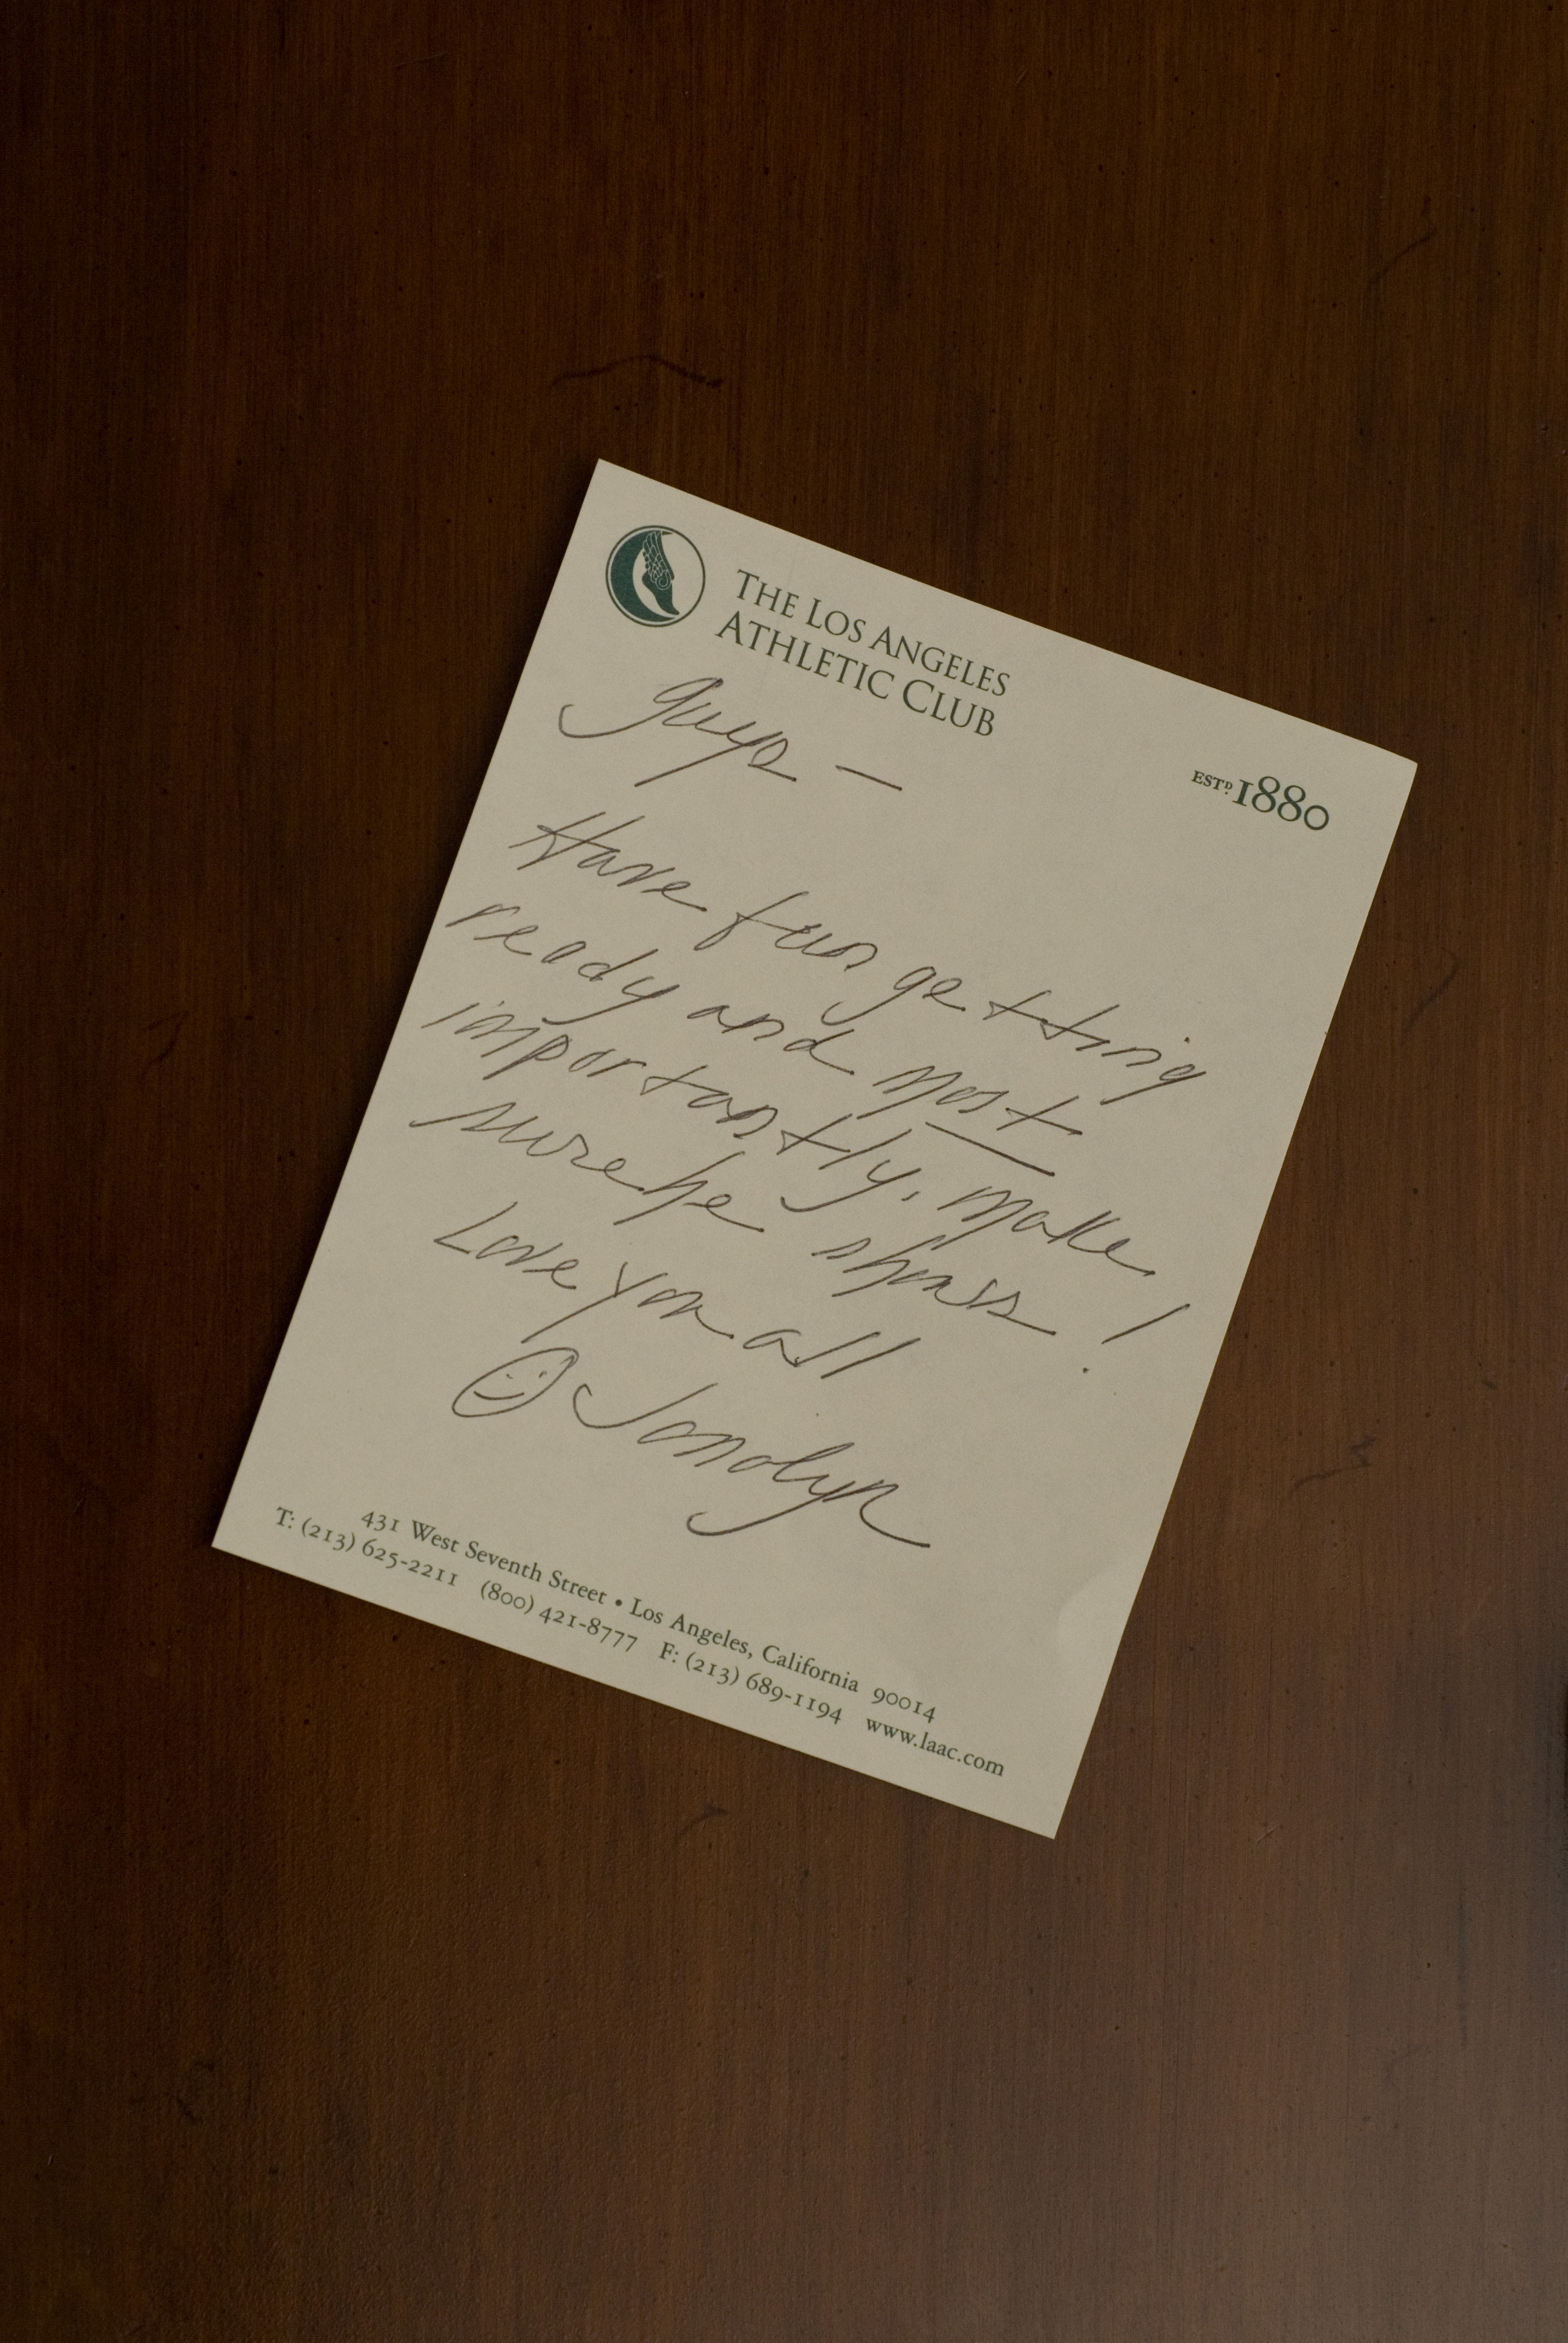 THE LOS ANGELES
ATHLETIC CLUB
ESTD. 1880
Guys —
Have fun getting
ready and most
importantly, make
sure he shows!
Love you all
Jonolyn
431 West Seventh Street • Los Angeles, California 90014
T: (213) 625-2211 (800) 421-8777 F: (213) 689-1194 www.laac.com